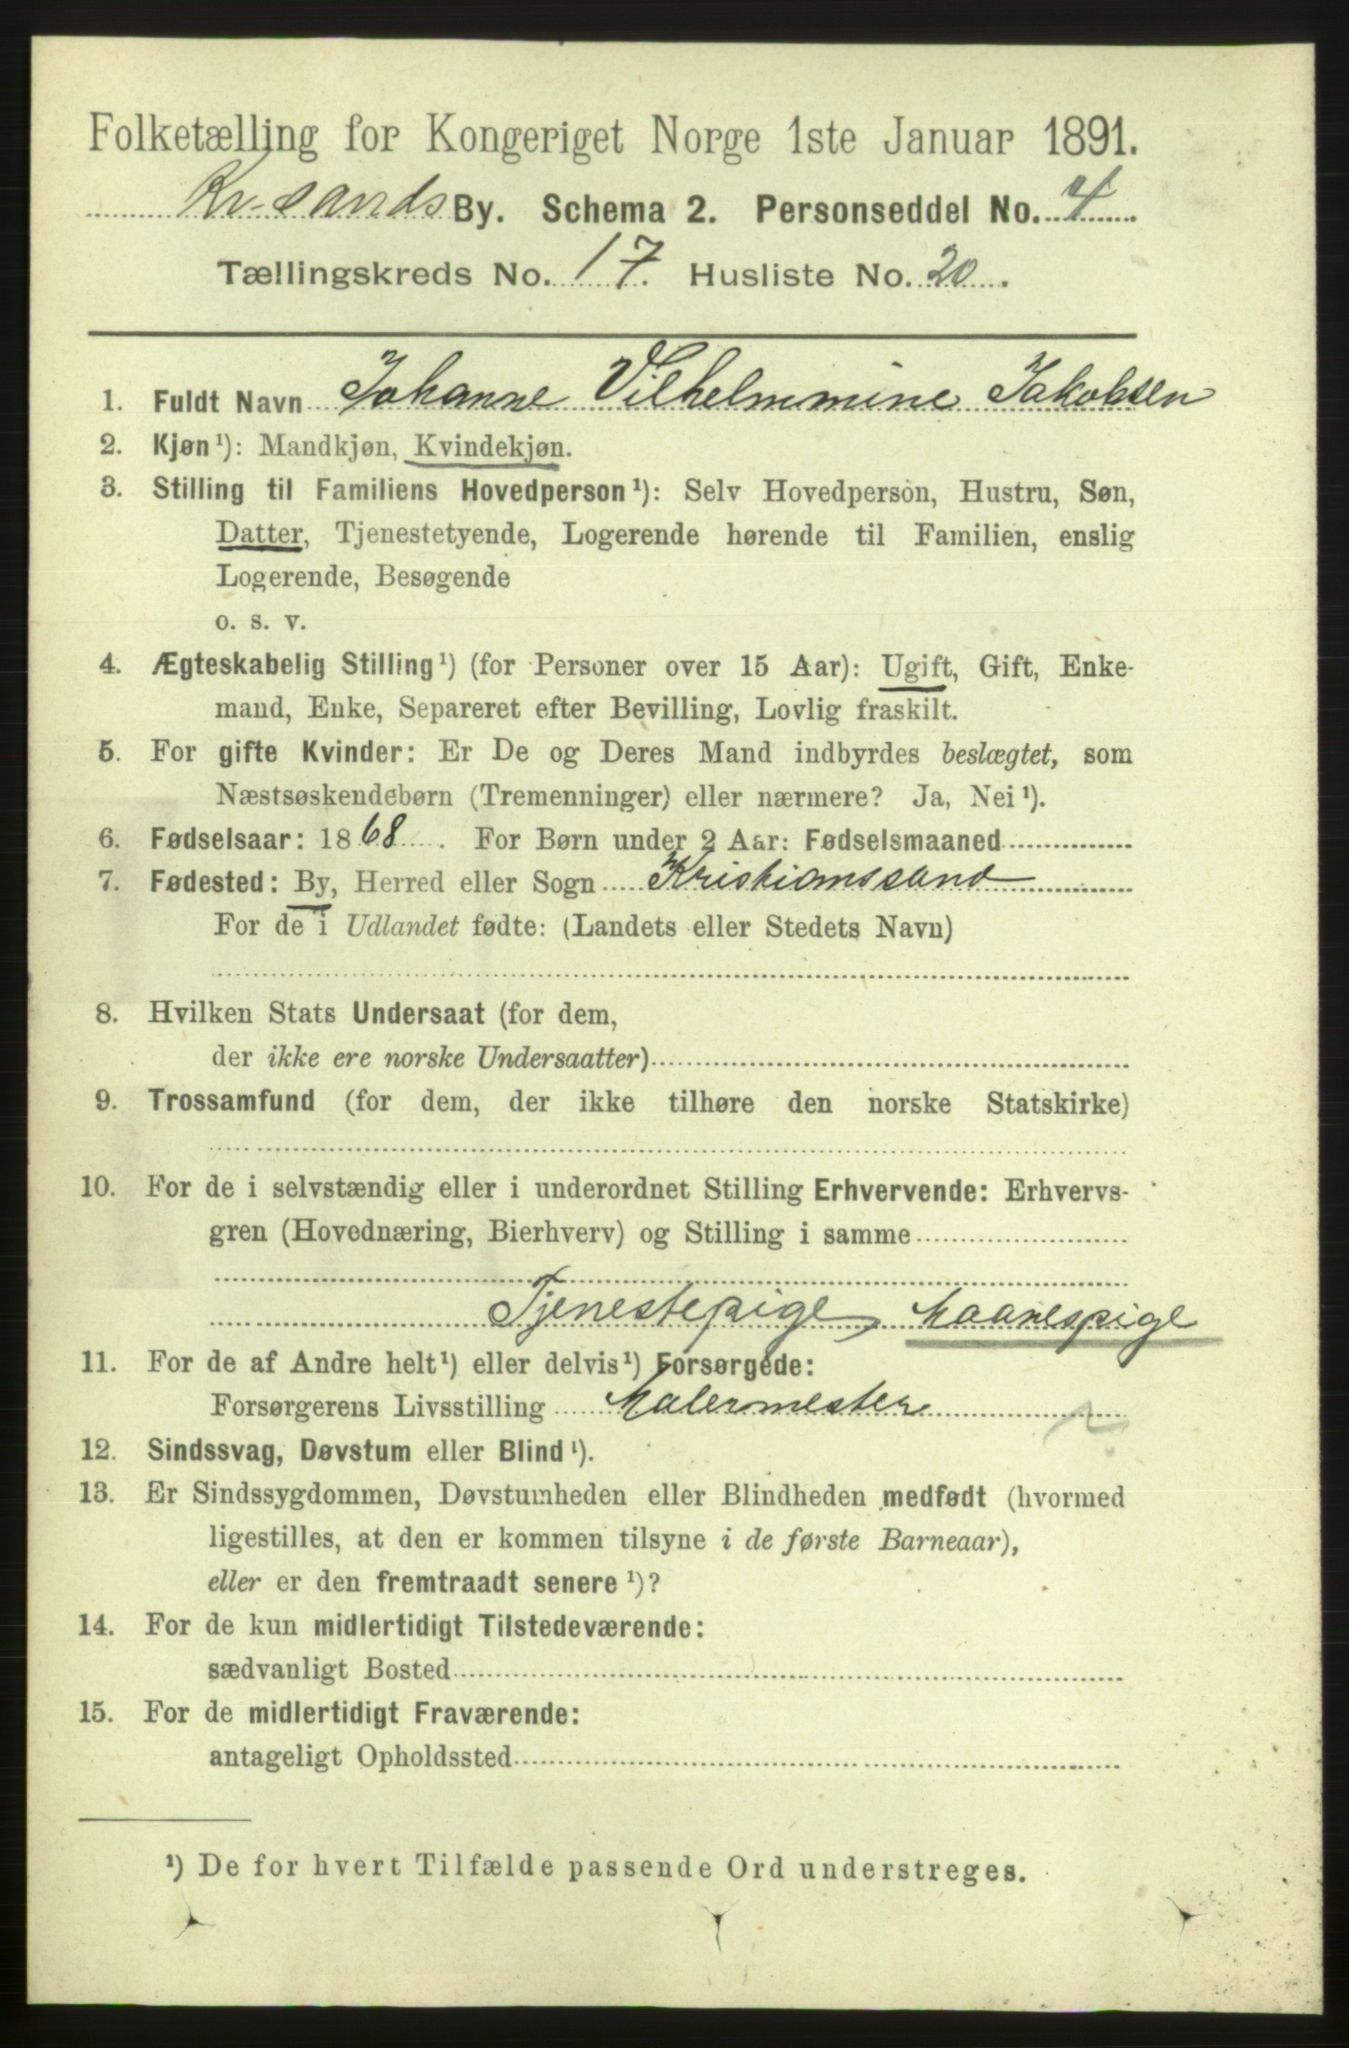 Folketælling for Kongeriget Norge 1ste Januar 1891.
Kr.sands By. Schema 2. Personseddel No. 4
Tællingskreds No. 17. Husliste No. 20.
1. Fuldt Navn Johanne Vilhelmmine Jakobsen
2. Kjøn¹): Mandkjøn, Kvindekjøn.
3. Stilling til Familiens Hovedperson¹): Selv Hovedperson, Hustru, Søn,
Datter, Tjenestetyende, Logerende hørende til Familien, enslig
Logerende, Besøgende
o. s. v.
4. Ægteskabelig Stilling¹) (for Personer over 15 Aar): Ugift, Gift, Enke-
mand, Enke, Separeret efter Bevilling, Lovlig fraskilt.
5. For gifte Kvinder: Er De og Deres Mand indbyrdes beslægtet, som
Næstsøskendebørn (Tremenninger) eller nærmere? Ja, Nei¹).
6. Fødselsaar: 1868. For Børn under 2 Aar: Fødselsmaaned
7. Fødested: By, Herred eller Sogn Kristianssand
For de i Udlandet fødte: (Landets eller Stedets Navn)
8. Hvilken Stats Undersaat (for dem,
der ikke ere norske Undersaatter)
9. Trossamfund (for dem, der ikke tilhøre den norske Statskirke)
10. For de i selvstændig eller i underordnet Stilling Erhvervende: Erhvervs-
gren (Hovednæring, Bierhverv) og Stilling i samme
Tjenestepige, Maanespige
11. For de af Andre helt¹) eller delvis¹) Forsørgede:
Forsørgerens Livsstilling Malermester
12. Sindssvag, Døvstum eller Blind¹).
13. Er Sindssygdommen, Døvstumheden eller Blindheden medfødt (hvormed
ligestilles, at den er kommen tilsyne i de første Barneaar),
eller er den fremtraadt senere¹)?
14. For de kun midlertidigt Tilstedeværende:
sædvanligt Bosted
15. For de midlertidigt Fraværende:
antageligt Opholdssted
¹) De for hvert Tilfælde passende Ord understreges.